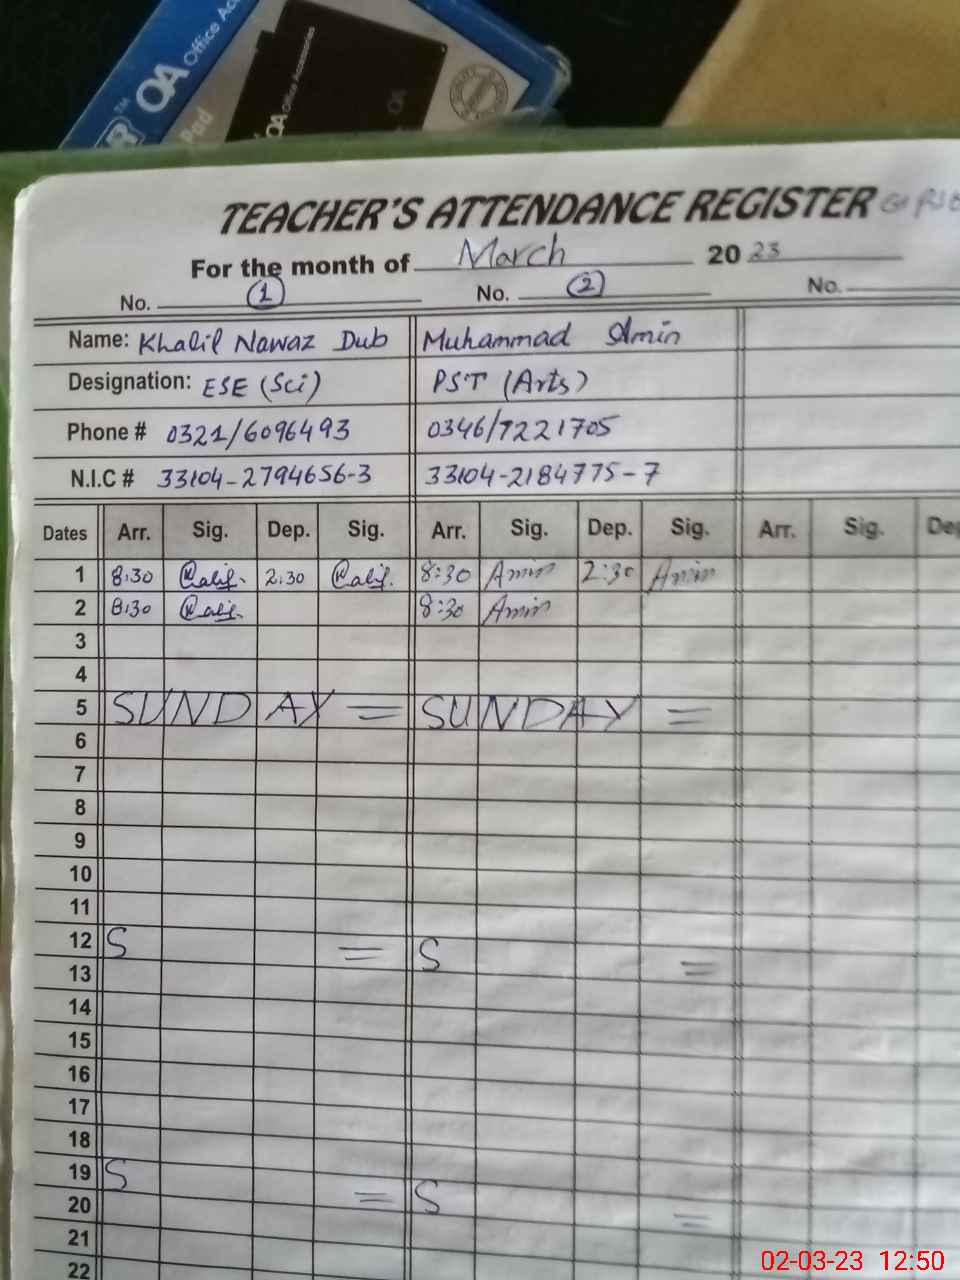 OA Office Acc
TM
Pad
OA Office Accessories
OA
TEACHER'S ATTENDANCE REGISTER
For the month of March 2023
No. 1 No. 2 No.
Name: Khalil Nawaz Dub Muhammad Amin
Designation: ESE (Sci) PST (Arts)
Phone # 0321/6096493 0346/7221705
N.I.C # 33104-2794656-3 33104-2184775-7
Dates Arr. Sig. Dep. Sig. Arr. Sig. Dep. Sig. Arr. Sig. Dep
1 8:30 2:30 8:30 Amin 2:30 Amin
2 8:30 8:30 Amin
3
4
5 SUNDAY = SUNDAY =
6
7
8
9
10
11
12 S = S =
13
14
15
16
17
18
19 S = S =
20
21
22
02-03-23 12:50